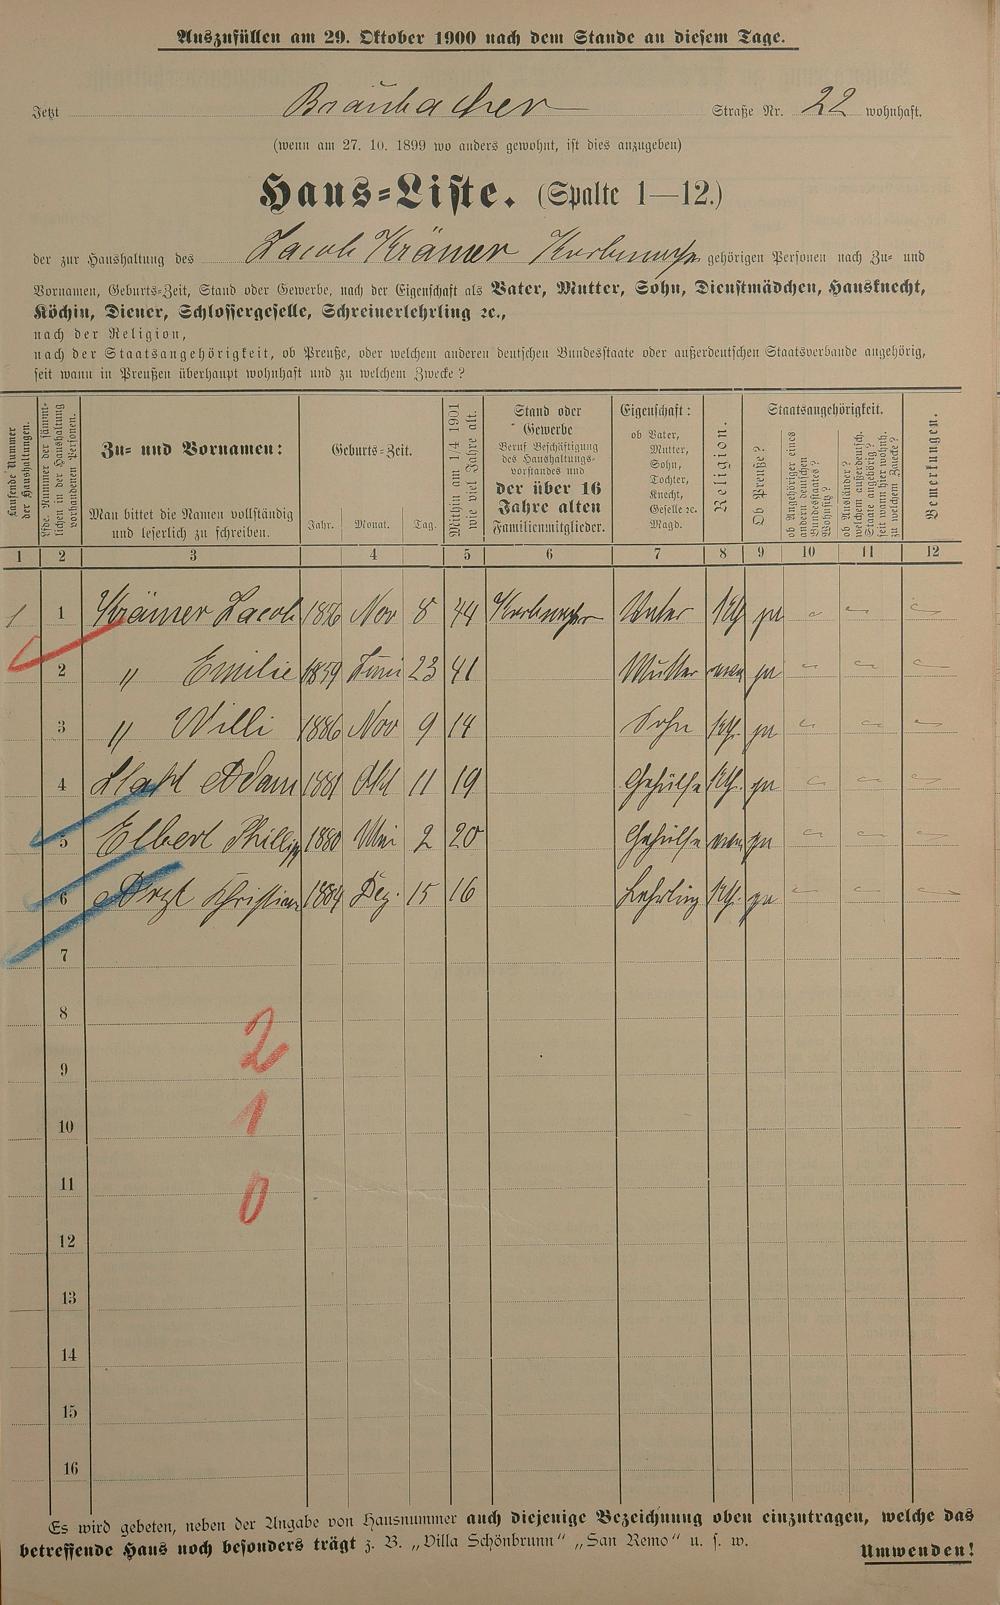 Auszufüllen am 29. Oktober 1900 nach dem Stande an diesem Tage.
Jetzt Braubacher Straße Nr. 22 wohnhaft.
(wenn am 27. 10. 1899 wo anders gewohnt, ist dies anzugeben)
Haus-Liste. (Spalte 1—12.)
der zur Haushaltung des Jacob Krämer Korbmacher gehörigen Personen nach Zu- und
Vornamen, Geburts-Zeit, Stand oder Gewerbe, nach der Eigenschaft als Vater, Mutter, Sohn, Dienstmädchen, Hausknecht,
Köchin, Diener, Schlossergeselle, Schreinerlehrling ꝛc.,
nach der Religion,
nach der Staatsangehörigkeit, ob Preuße, oder welchem anderen deutschen Bundesstaate oder außerdeutschen Staatsverbande angehörig,
seit wann in Preußen überhaupt wohnhaft und zu welchem Zwecke?
Laufende Nummer der Haushaltungen.
Lfde. Nummer der sämmtlichen in der Haushaltung vorhandenen Personen.
Zu- und Vornamen:
Man bittet die Namen vollständig
und leserlich zu schreiben.
Geburts-Zeit.
Jahr. Monat. Tag.
Mithin am 1/4 1901 wie viel Jahre alt.
Stand oder
Gewerbe
Beruf Beschäftigung
des Haushaltungs-
vorstandes und
der über 16
Jahre alten
Familienmitglieder.
Eigenschaft:
ob Vater,
Mutter,
Sohn,
Tochter,
Knecht,
Geselle ꝛc.
Magd.
Religion.
Staatsangehörigkeit.
Ob Preuße?
ob Angehöriger eines
andern deutschen
Bundesstaates?
Wohnsitz?
ob Ausländer?
welchem außerdeutsch.
Staate angehörig?
seit wann hier wohnh.
zu welchem Zwecke?
Bemerkungen.
1 2 3 4 5 6 7 8 9 10 11 12
1 1 Krämer Jacob 1856 Nov 8 44 Korbmacher Vater Kth ja
2 " Emilie 1859 Juni 23 41 Mutter evan ja
3 " Willi 1886 Nov 9 14 Sohn Kth. ja
4 Adam 1881 Okt 11 19 Gehülfe Kth. ja
5 Elbert Phillipp 1880 Mai 2 20 Gehülfe evan ja
6 Arzt Christian 1884 Dez. 15 16 Lehrling Kth. ja
7
8
2
9
10
1
11
0
12
13
14
15
16
Es wird gebeten, neben der Angabe von Hausnummer auch diejenige Bezeichnung oben einzutragen, welche das
betreffende Haus noch besonders trägt z. B. „Villa Schönbrunn" „San Remo" u. s. w.
Umwenden!